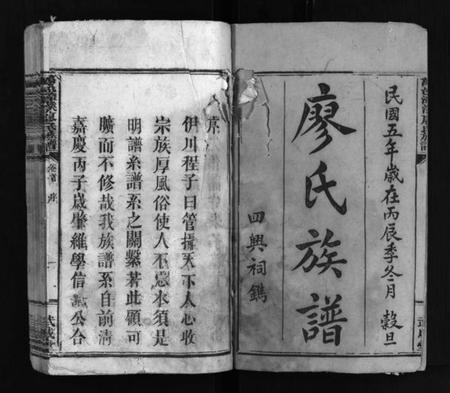 民國五年歲在丙辰季冬月 穀旦
廖氏族譜
四興祠鐫
序
伊川程子曰管攝天下人心收
宗族厚風俗使人不忘本須是
明譜系譜系之關繫若此顧可
曠而不修哉我族譜系自前清
嘉慶丙子歲肇維學信 公合